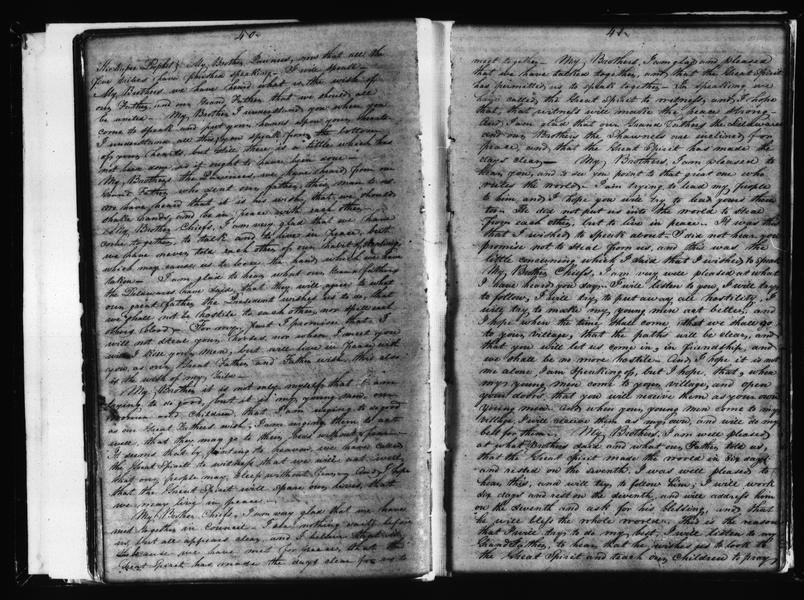 40
Kickapoo Prophet; My Brother Pawnees, now that all the
few have finished speaking - I will speak -
My Brothers we have heard what is the wish of
our Father, and our Grand Father that we should all
be united. - My Brother I understand you when you
come to speak and put your hands upon your breasts
I understand all that you speak from the bottom
of your hearts but still there is a little which has
not been said as it ought to have been done -
My Brothers the Pawnees, we have heard from our
Grand Father who sent our father, this man to us
we have heard that it is his wish, that we should
shake hands, and be in peace with each other
My Brother Chiefs, I am very glad that we have
come together, to talk and to live in Peace, but
we have never told each other of our habit of
which may cause us to loose the hands which we have
taken - I am glad to hear what our Grand fathers
the Delawares have said, that they will agree to what
our great father the President wished us to us, that
we shall not be hostile to each other, nor spill each
others blood - For my part I promise that I
will not steal your horses, nor when I meet you
will I kill your men, but will live in peace with
you, as our Great Father and Father wish, this also
is the wish of my tribe.
My Brother it is not only myself that I am
trying to do good, but it is my young men, our
women and children, that I am urging to do good
as our Great Fathers wish; I am urging them to act
well, that they may go to their beds without fear -
It seems that by pointing to heaven we have called
the Great Spirit to witness that we will act well,
that our people may sleep without and I hope
that the Great Spirit will spare our lives, that
we may live in peace! -
My Brother Chiefs; I am very glad that we have
met together in Council I see nothing before
us but all appears clear, and I believe
because we have met for peace, that the
Great Spirit has made the days clear for us to
41
meet together - My Brothers, I am glad and pleased
that we have talked together, and that the Great Spirit
has permitted us to speak together - In speaking we
have called the Great Spirit to witness, and I hope
that, that witness will make the peace strong
And I am glad that our Grand Fathers the Delawares
and our Brothers the Shawnees are inclined for
peace, and, that the Great Spirit has made the
days clear - My Brothers, I am pleased to
hear you, and to see you point to that great one who
rules the world - I am trying to lead my people
to him, and I hope you will try to lead yours there
too. He did not put us into the world to steal
from each other, but to live in peace. It was this
that I wished to speak about - I did not hear you
promise not to steal from us, and this was the
little concerning which I said that I wished to speak
My Brother Chiefs, I am very well pleased at what
I have heard you say - I will listen to you, I will try
to follow, I will try to put away all hostility, I
will try to make my young men act better, and
I hope when the time shall come, that we shall go
to your village, that the path will be clear, and
that you will let us come in, in friendship, and
we shall be no more hostile. And I hope it is not
me alone I am speaking of, but I hope, that, when
my young men come to your village, and open
your doors, that you will receive them as your own
young men. And when your young men come to my
village, I will receive them as my own, and will do my
best for them. - My Brothers, I am well pleased
at what Brothers said, and as our Father, told us,
that the Great Spirit made the world in six days
and rested on the seventh. I was well pleased to
hear this, and will try to follow him; I will work
six days and rest on the seventh, and will address him
on the seventh and ask for his blessing, and that
he will bless the whole world. This is the reason
that I will try to do my best, I will listen to my
Grandfather, to hear that he wishes us to look to
the Great Spirit and teach our Children to pray,